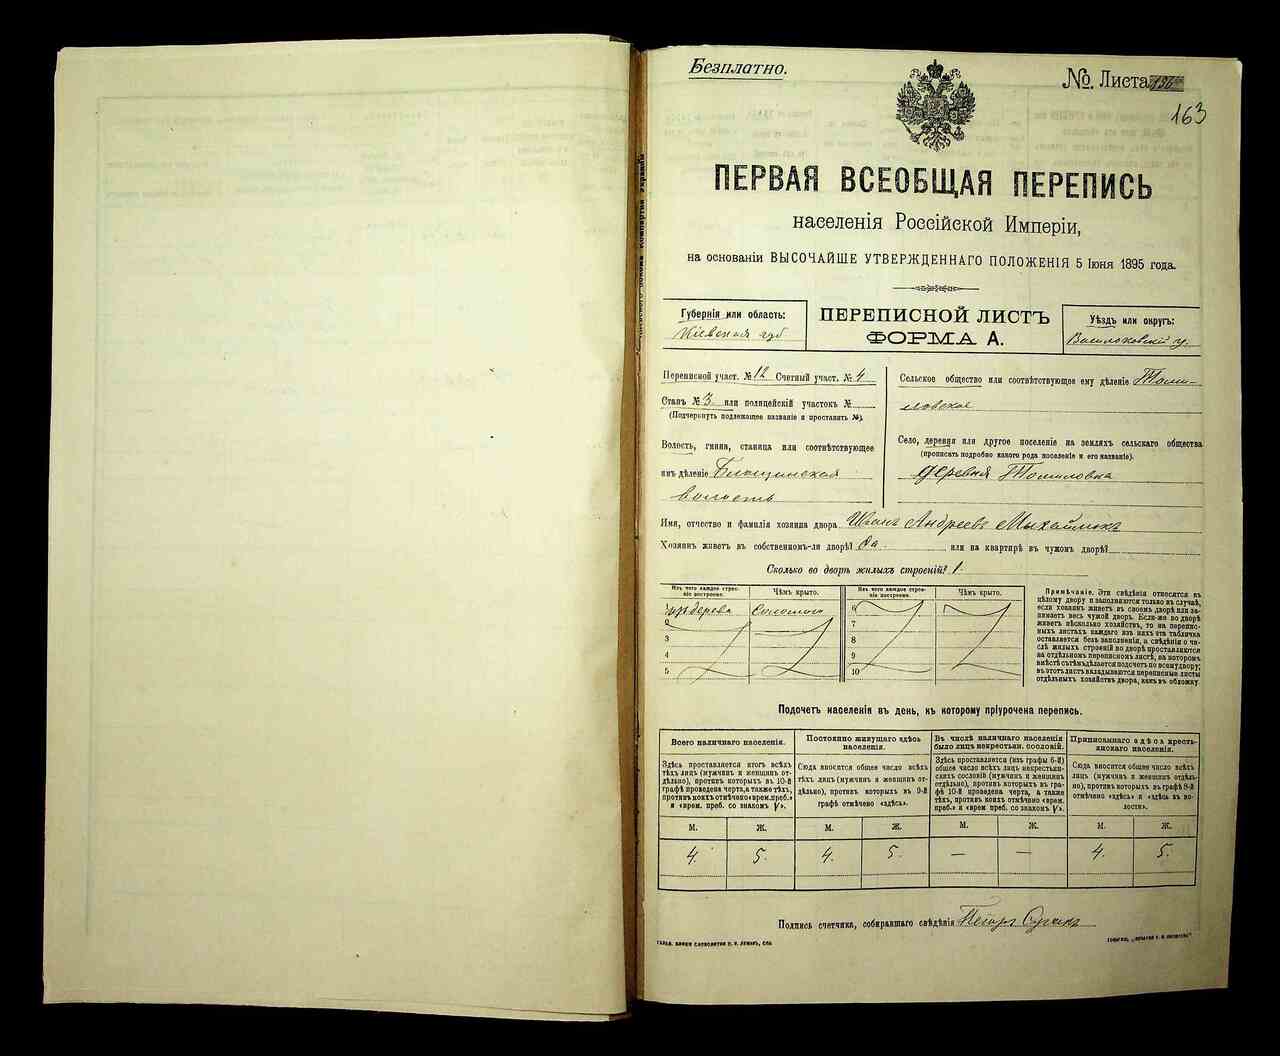 Безплатно.
№. Листа 136
163
ПЕРВАЯ ВСЕОБЩАЯ ПЕРЕПИСЬ
населенія Россійской Имперіи,
на основаніи ВЫСОЧАЙШЕ УТВЕРЖДЕННАГО ПОЛОЖЕНІЯ 5 Іюня 1895 года.
Губернія или область:
Кіевская губ
ПЕРЕПИСНОЙ ЛИСТЪ
ФОРМА А.
Уѣздъ или округъ:
Васильковскій у.
Переписной участ. № 12 Счетный участ. № 4
Станъ № 3 или полицейскій участокъ №
(Подчеркнуть подлежащее названіе и проставить №).
Волость, гмина, станица или соотвѣтствующее
имъ дѣленіе
волость
Сельское общество или соотвѣтствующее ему дѣленіе Томи-
ловское
Село, деревня или другое поселеніе на земляхъ сельскаго общества
(прописать подробно какого рода поселеніе и его названіе).
деревня Томиловка
Имя, отчество и фамилія хозяина двора Иванъ Андреевъ Михайлюкъ
Хозяинъ живетъ въ собственномъ-ли дворѣ? да. или на квартирѣ въ чужомъ дворѣ?
Сколько во дворѣ жилыхъ строеній? 1.
Изъ чего каждое строе-
ніе построено.
Чѣмъ крыто.
Изъ чего каждое строе-
ніе построено.
Чѣмъ крыто.
1 изъ дерева Соломою 6
2 7
3 8
4 9
5 10
Примѣчаніе. Эти свѣдѣнія относятся къ
цѣлому двору и заполняются только въ случаѣ,
если хозяинъ живетъ въ своемъ дворѣ или за-
нимаетъ весь чужой дворъ. Если-же во дворѣ
живетъ нѣсколько хозяйствъ, то на перепис-
ныхъ листахъ каждаго изъ нихъ эта табличка
оставляется безъ заполненія, а свѣдѣнія о чи-
слѣ жилыхъ строеній во дворѣ проставляются
на отдѣльномъ переписномъ листѣ, на которомъ
вмѣстѣ съ тѣмъ дѣлается подсчетъ по всему двору;
въ этотъ листъ вкладываются переписные листы
отдѣльныхъ хозяйствъ двора, какъ въ обложку.
Подсчетъ населенія въ день, къ которому пріурочена перепись.
Всего наличнаго населенія.
Здѣсь проставляется итогъ всѣхъ
тѣхъ лицъ (мужчинъ и женщинъ от-
дѣльно), противъ которыхъ въ 10-й
графѣ проведена черта, а также тѣхъ,
противъ коихъ отмѣчено «врем. преб.»
и «врем. преб. со знакомъ V».
Постоянно живущаго здѣсь
населенія.
Сюда вносится общее число всѣхъ
тѣхъ лицъ (мужчинъ и женщинъ от-
дѣльно), противъ которыхъ въ 9-й
графѣ отмѣчено «здѣсь».
Въ числѣ наличнаго населенія
было лицъ некрестьян. сословій.
Здѣсь проставляется (изъ графы 6-й)
общее число всѣхъ лицъ некрестьян-
скихъ сословій (мужчинъ и женщинъ
отдѣльно), противъ которыхъ въ гра-
фѣ 10-й проведена черта, а также
тѣхъ, противъ коихъ отмѣчено «врем.
преб.» и «врем. преб. со знакомъ V».
Приписаннаго здѣсь кресть-
янскаго населенія.
Сюда вносится общее число всѣхъ
лицъ (мужчинъ и женщинъ отдѣль-
но), противъ которыхъ въ графѣ 8-й
отмѣчено «здѣсь» и «здѣсь въ во-
лости».
М. Ж. М. Ж. М. Ж. М. Ж.
4. 5. 4. 5. — — 4. 5.
Подпись счетчика, собиравшаго свѣдѣнія